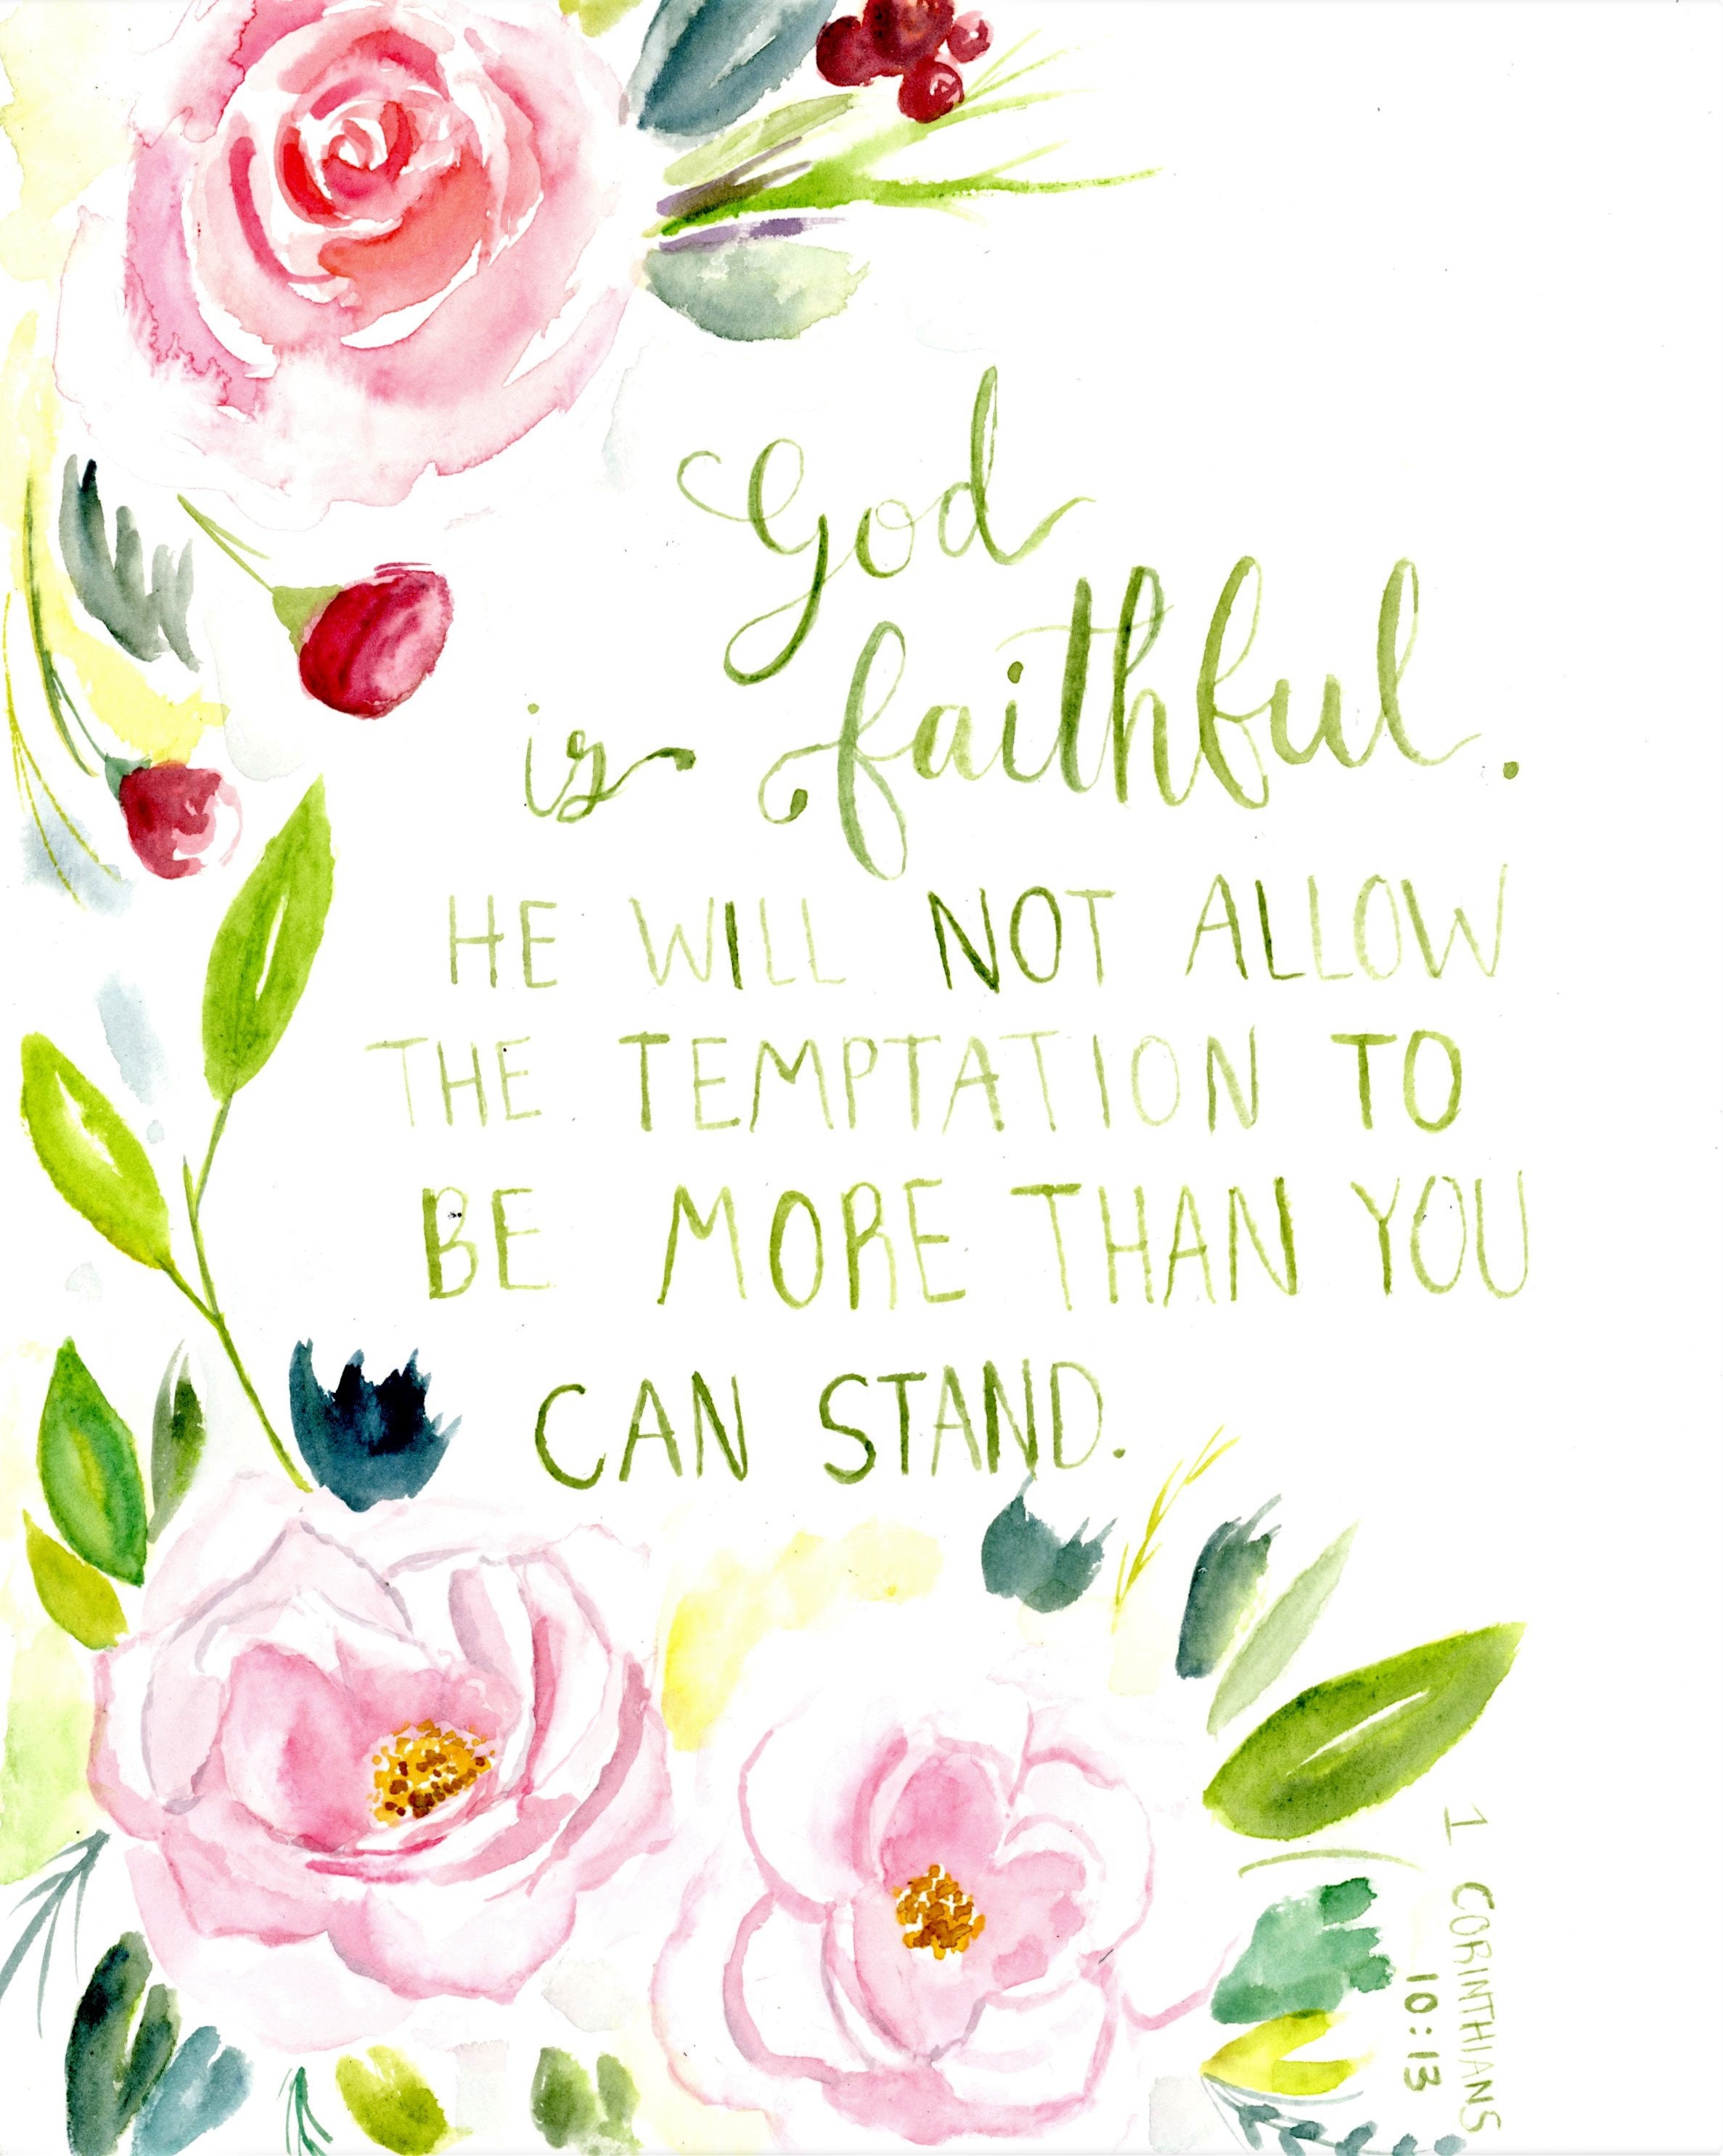 God
is faithful.
HE WILL NOT ALLOW
THE TEMPTATION TO
BE MORE THAN YOU
CAN STAND.
1 CORINTHIANS
10:13